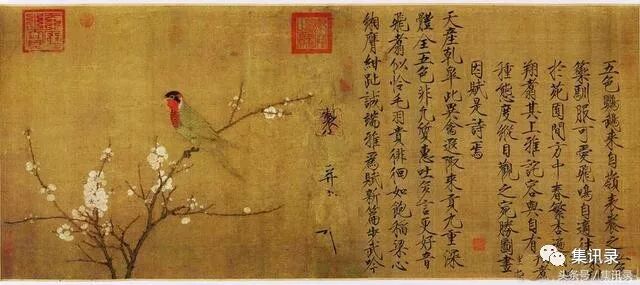 五色鸚鵡來自嶺表養之
籞馴服可愛飛鳴自適往
於苑囿間方中春繁杏遍
翔翥其上雅詫容與自有
種態度縱目觀之宛勝圖畫
因賦是詩焉
天產乾皋此異禽遐陬來貢九重深
體全五色非凡質惠吐多言更好音
飛翥似憐毛羽貴徘徊如飽稻粱心
緗膺紺趾誠端雅為賦新篇步武吟
製
并
集讯录
头条号/集讯录